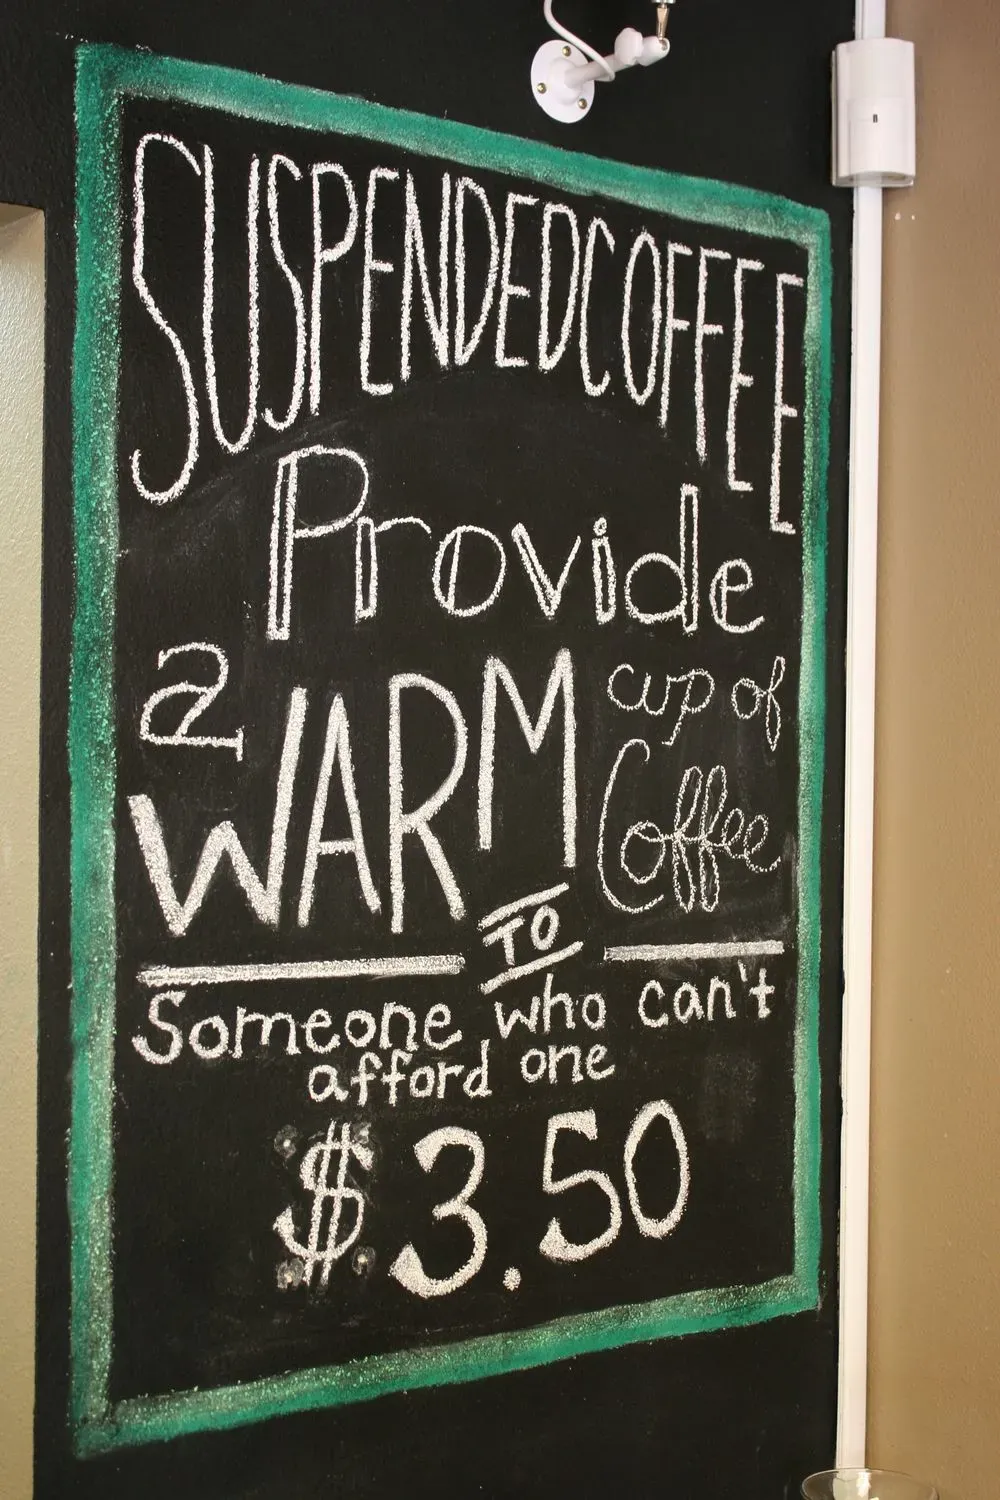 SUSPENDED COFFEE
Provide
a WARM cup of
Coffee
TO
Someone who can't
afford one
$3.50